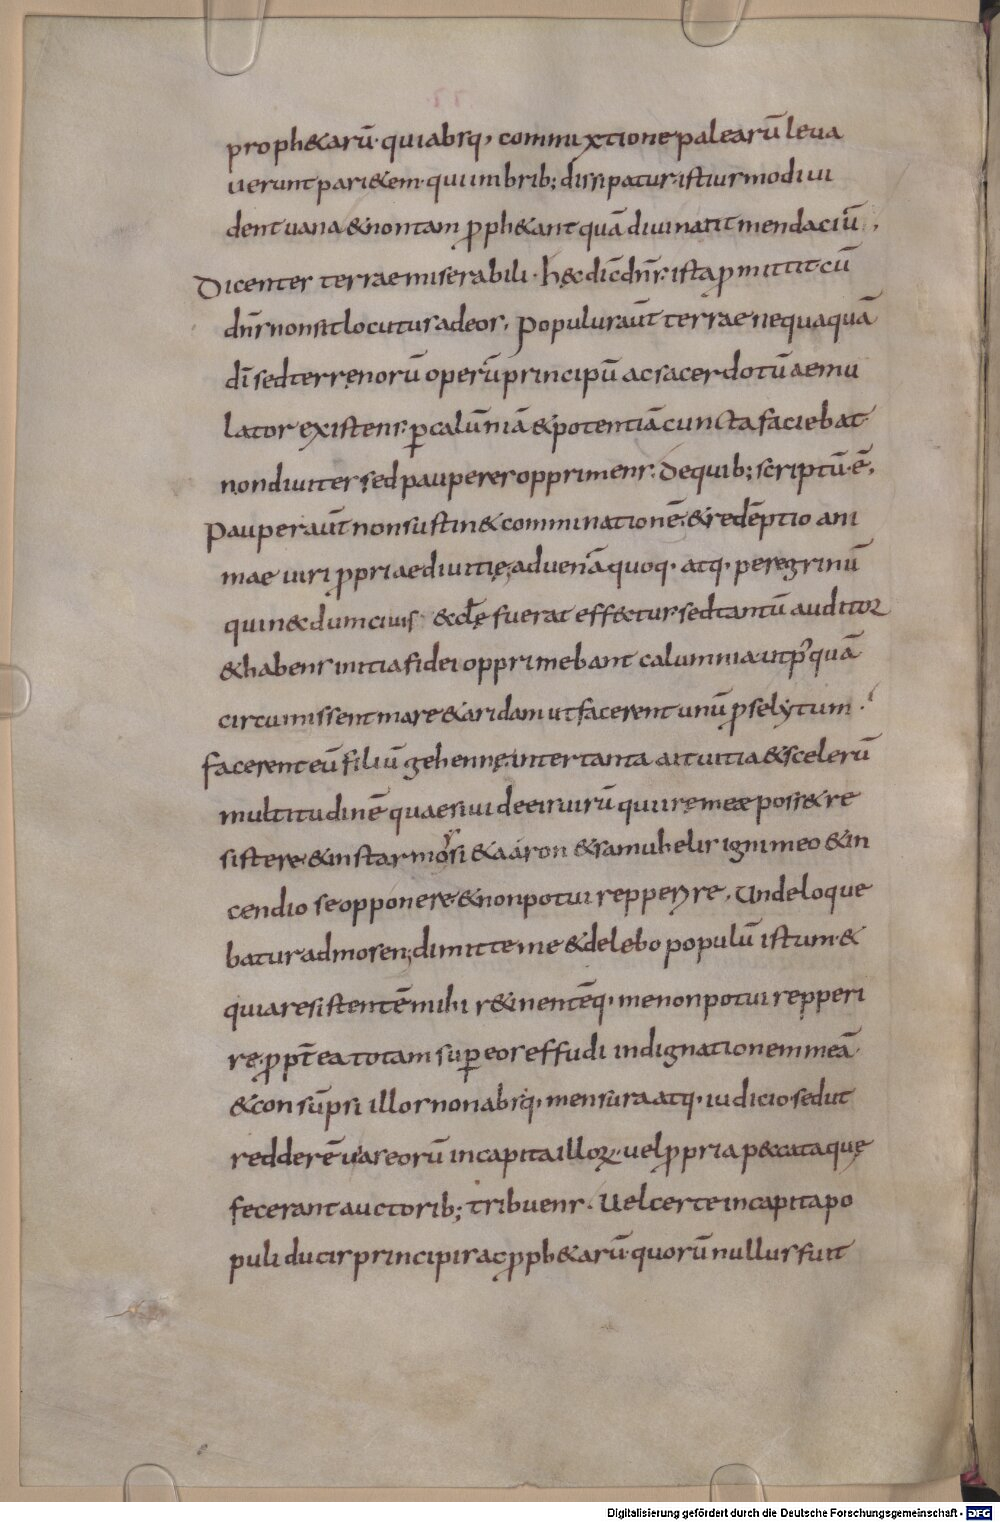 proph&arū· quiabsq· commixtione palearū leua
uerunt pari&em· qui imbrib; dissipatur· istiusmodi ui
dent uana & non tam ꝓph&ant quā diuinatit mendaciū·,
Dicentes terrae miserabili· h̄ęc dic̄ dn̄s· ista ꝓmittit· cū
dn̄s non sit locutus ad eos· Populus aūt terrae nequaquā
dī sed terrenorū operū principū ac sacerdotū aemu
lator existens· ꝑ calūniā & potentiā cuncta faciebat·
non diuites sed pauperes opprimens· De quib; scriptū· ē·,
Pauper aūt non sustin& comminationē· & redēptio ani
mae uiri ꝓpriae diuitię; aduenā quoq· atq· peregrinū
qui n&dum ciuis & ecl̄ę fuerat eff&tus· sed tantū auditoꝝ
& habens initia fidei opprimebant calumnia· ut pꝰquā
circumissent mare & aridam ut facerent unū ꝓselytum·
facerent eū filiū gehennę; inter tanta ait uitia & scelerū
multitudinē quaesiui de eis uirū qui irę meae poss& re
sistere & instar mosi & aaron & samuhelis igni meo & in
cendio se opponere & non potui repperyre· Unde loque
batur ad mosen; dimitte me & delebo populū istum· &
quia resistentē mihi r&inentēq· me non potui repperi
rę· ꝓpt̄ea totam suꝑ eos effudi indignationem meā·
& consūpsi illos non absq· mensura atq· iudicio sed ut
redderē uias eorū in capita illoꝝ· uel ꝓpria p&cata quę
fecerant auctorib; tribuens· Uel certe in capita po
puli ducis principis ac ꝓph&arū· quorū nullus fuit
Digitalisierung gefördert durch die Deutsche Forschungsgemeinschaft - DFG